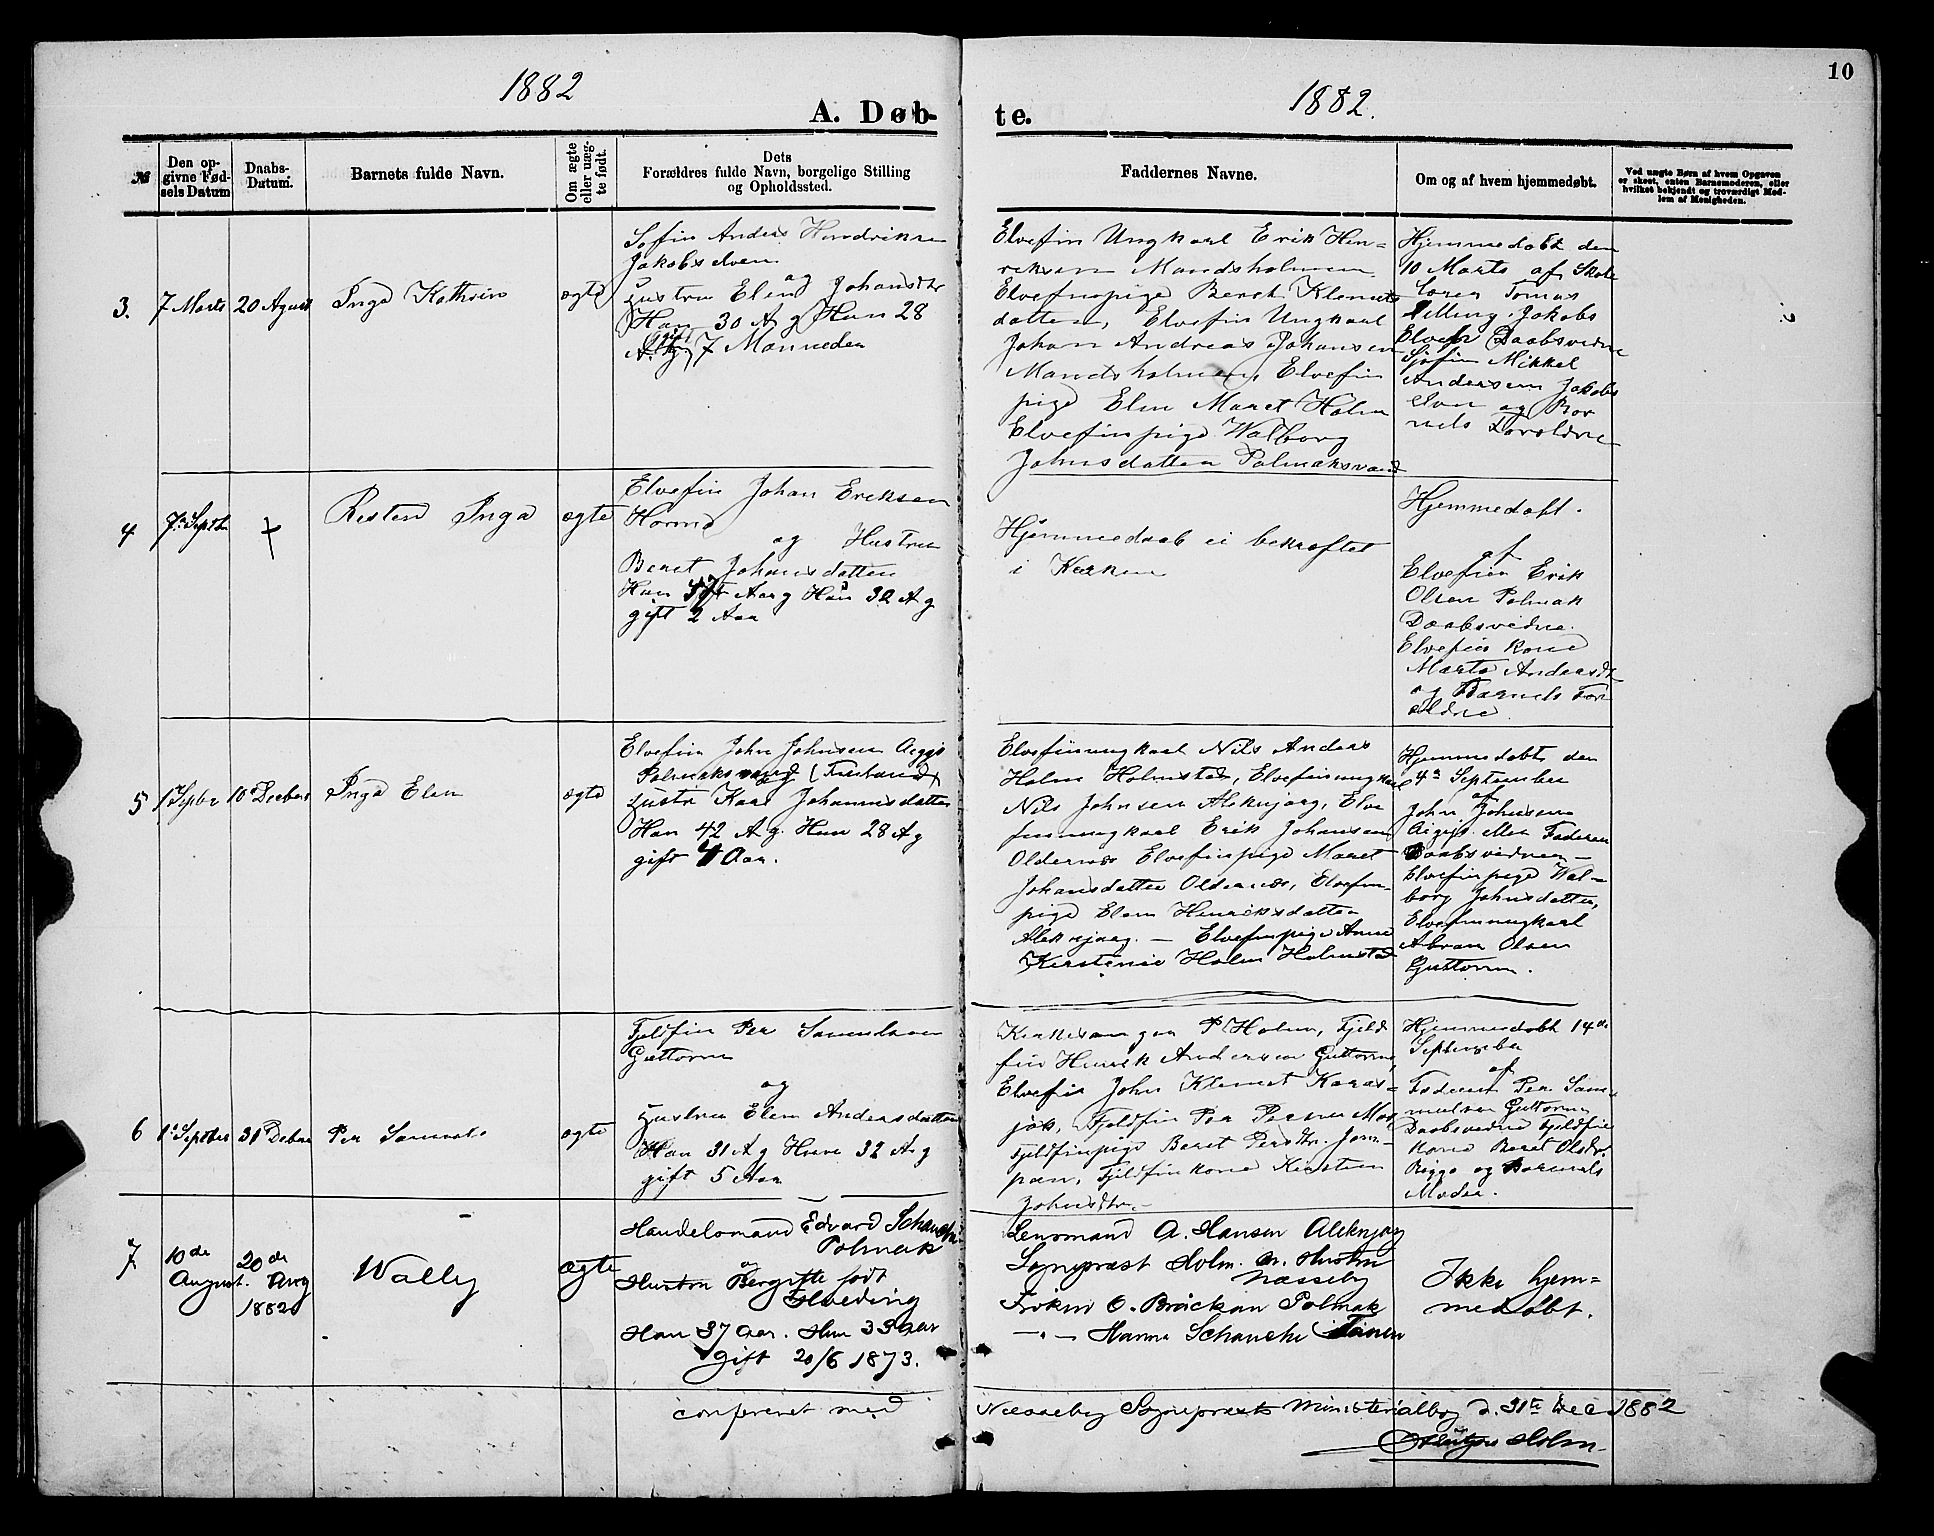 1882
1882.
10
A. Døb-
te.
№
Den op-
givne Fød-
sels Datum
Daabs-
Datum.
Barnets fulde Navn.
Om ægte
eller uæg-
te født.
Dets
Forældres fulde Navn, borgelige Stilling
og Opholdssted.
Faddernes Navne.
Om og af hvem hjemmedøbt.
Ved uægte Børn af hvem Opgaven
er skeet, enten Barnemoderen, eller
hvilket bekjendt og troværdigt Med-
lem af Menigheden.
3.
7 Marts
20 August
Inga Kathrin
ægte
Søfin Anders Hendriksen
Jakobselven
og
Hustru Elen Johansdtr
Han 30 A g Hun 28
A g 7 Manneder
Elvefin Ungkarl Erik Hen-
riksen Mandsholmen
Elvefinpige Beret Klemets
datter, Elvefin Ungkarl
Johan Andreas Johansen
Mandsholmen, Elvefin
pige Elen Maret Holm
Elvefinpige Walborg
Johnsdatter Polmaksvand
Hjemmedøbt den
10 Marts af Skole
lærer Tomas
Jakobs
Elven Daabsvidne
Sjøfin Mikkel
Andersen Jakobs
elven og Bar
nets Forældre
4
7de Septbr
+
Resten Inga
ægte
Elvefin Johan Eriksen
Horma
og Hustru
Beret Johansdatter
Han Aar g Hun 32 A g
gift 2 Aar
Hjemmedaab ei bekræftet
i Kirken
Hjemmedøbt.
af
Elvefin Erik
Olsen Polmak
Daabsvidne.
Elvefin Kone
Marta Andersdtr
og Barnets For
ældre
5
1ste Septbr
10de Decbr
Inga Elen
ægte
Elvefin John Johnsen Aiggi
Polmaksvand (Finland)
Hustr Kari Johannsdatter
Han 42 A g. Hun 28 A g
gift 4 Aar.
Elvefinungkarl Nils Anders
Holm Holmstad, Elvefinungkarl
Nils Johnsen Aleknjarg, Elve
finungkarl Erik Johansen
Oldernæs Elvefinpige Maret
Johansdatter Oldernæs, Elvefin
pige Elen Henriksdatter
Aleknjarg. — Elvefinpige Anne
Kirstenie Holm Holmstad
Hjemmedøbt den
4de September
af
John Johnsen
Aigijs eller Faderen
Daabsvidner —
Elvefinpige Wal-
borg Johnsdatter,
Elvefinungkarl
Abram Olsen
Guttorm.
6
1ste Septbr
31te Decbr
Per Samuel
ægte
Fjeldfin Per Samuelsen
Guttorm
og
Hustru Elen Andersdatter
Han 31 A g Hun 32 A g
gift 5 Aar
Kirkesanger P Holm, Fjeld
fin Henrik Andersen Guttorm,
Elvefin John Klemet Karas-
jok, Fjeldfin Per Persen
Fjeldfinpige Beret Persdtr.
Fjeldfin kone Kirsten
Johnsdtr. -
Hjemmedøbt 14de
September
af
Faderen Per Sam-
muelsen Guttorm
Daabsvidne Fjeldfin
kone Beret Olsdtr.
Bigga og Barnets
Moder.
7.
10de
August.
20de
Aug
1882
Wally
ægte
Handelsmand Edvard Schanche
Polmak
og
Hustru Bergitte født
Hveding
Han 37 Aar. Hun 33 Aar
gift 20/6 1873.
Lensmand A. Hansen Aleknjarg
Sognepræst Holm. m. Hustru
Næsseby
Frøken O. Brückan Polmak
— " — Hanna Schanche
Ikke hjem-
medøbt.
conferert med
Næsseby Sognepræsts Ministerialbog d. 31te Dec 1882
Holm.